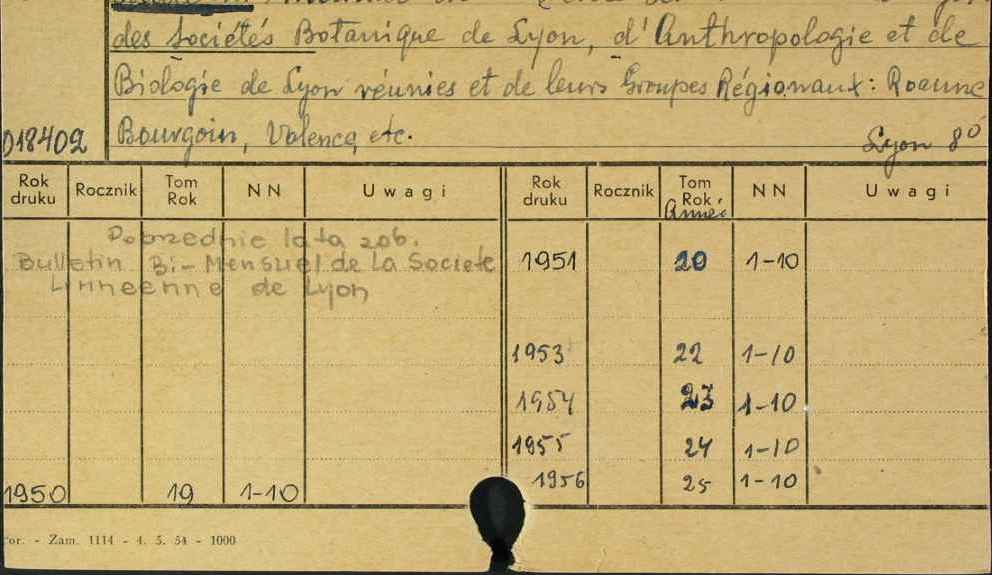 des Sociétés Botanique de Lyon, d'Anthropologie et de
Biologie de Lyon réunies et de leurs Groupes Régionaux: Roanne
018402 Bourgoin, Valence, etc. Lyon 8°
Rok druku Rocznik Tom Rok NN Uwagi Rok druku Rocznik Tom Rok Année NN Uwagi
Poprzednie lata zob.
Bulletin Bi-Mensuel de La Societe 1951 20 1-10
Linneenne de Lyon
1953 22 1-10
1954 23 1-10
1955 24 1-10
1956 25 1-10
1950 19 1-10
or. - Zam. 1114 - 4. 5. 54 - 1000